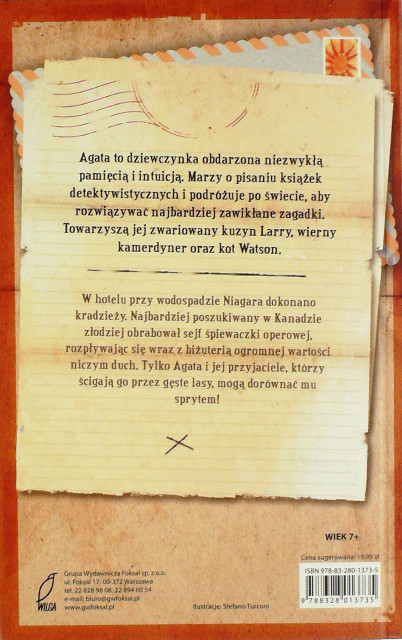 Agata to dziewczynka obdarzona niezwykłą
pamięcią i intuicją. Marzy o pisaniu książek
detektywistycznych i podróżuje po świecie, aby
rozwiązywać najbardziej zawikłane zagadki.
Towarzyszą jej zwariowany kuzyn Larry, wierny
kamerdyner oraz kot Watson.
W hotelu przy wodospadzie Niagara dokonano
kradzieży. Najbardziej poszukiwany w Kanadzie
złodziej obrabował sejf śpiewaczki operowej,
rozpływając się wraz z biżuterią ogromnej wartości
niczym duch. Tylko Agata i jej przyjaciele, którzy
ścigają go przez gęste lasy, mogą dorównać mu
sprytem!
WIEK 7+
Cena sugerowana: 19,99 zł
ISBN 978-83-280-1373-5
9 788328 013735
Grupa Wydawnicza Foksal sp. z o.o.
ul. Foksal 17, 00-372 Warszawa
tel. 22 828 98 08, 22 894 60 54
e-mail: biuro@gwfoksal.pl
www.gwfoksal.pl
WILGA
Ilustracje: Stefano Turconi